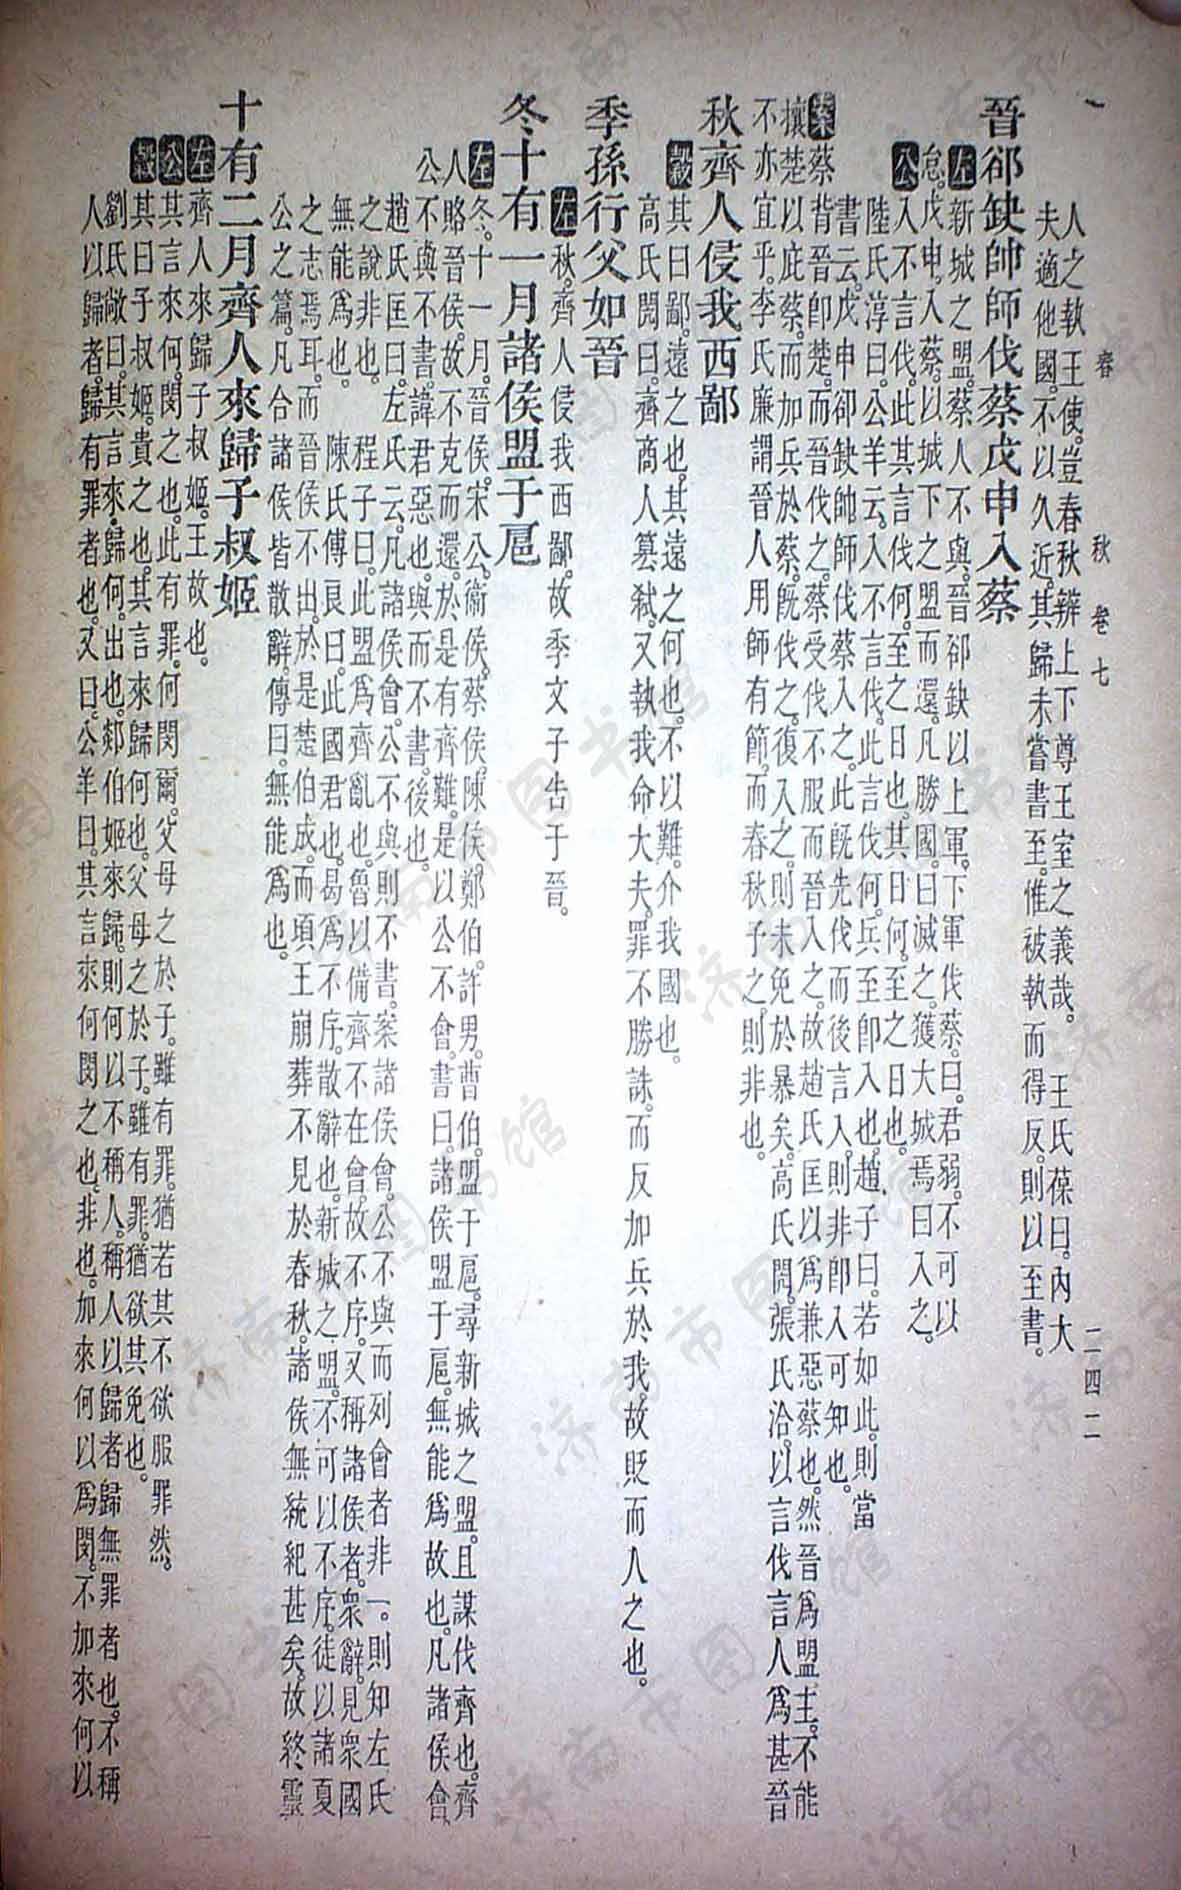 春秋 卷七 二四二
人之執王使。豈春秋辨上下尊王室之義哉。 王氏葆曰。內大
夫適他國。不以久近。其歸未嘗書至。惟被執而得反。則以至書。
晉郤缺帥師伐蔡戊申入蔡
左 新城之盟。蔡人不與。晉郤缺以上軍。下軍伐蔡。曰。君弱。不可以
怠。戊申。入蔡。以城下之盟而還。凡勝國。曰滅之。獲大城焉曰入之。
公 入不言伐。此其言伐何。至之日也。其日何。至之日也。
陸氏淳曰。公羊云。入不言伐。此言伐何。兵至卽入也。趙子曰。若如此。則當
書云。戊申卻缺帥師伐蔡入之。此旣先伐而後言入。則非卽入可知也。
案 蔡背晉卽楚。而晉伐之。蔡受伐不服而晉入之。故趙氏匡以爲兼惡蔡也。然晉爲盟主。不能
攘楚以庇蔡。而加兵於蔡。旣伐之。復入之。則未免於暴矣。高氏閌。張氏洽。以言伐言人爲甚晉
不亦宜乎。李氏廉謂晉人用師有節。而春秋予之。則非也。
秋齊人侵我西鄙
穀 其曰鄙。遠之也。其遠之何也。不以難。介我國也。
高氏閌曰。齊商人簒弑。又執我命大夫。罪不勝誅。而反加兵於我。故貶而人之也。
季孫行父如晉
左 秋。齊人侵我西鄙。故季文子告于晉。
冬十有一月諸侯盟于扈
左 冬。十一月。晉侯。宋公。衞侯。蔡侯。陳侯。鄭伯。許男。曹伯。盟于扈。尋新城之盟。且謀伐齊也。齊
人賂晉侯。故不克而還。於是有齊難。是以公不會。書曰。諸侯盟于扈。無能爲故也。凡諸侯會。
公不與不書。諱君惡也。與而不書。後也。
趙氏匡曰。左氏云。凡諸侯會。公不與則不書。案諸侯會。公不與而列會者非一。則知左氏
之說非也。 程子曰。此盟爲齊亂也。魯以備齊不在會。故不序。又稱諸侯者。衆辭。見衆國
無能爲也。 陳氏傅良曰。此國君也。曷爲不序。散辭也。新城之盟。不可以不序。徒以諸夏
之志焉耳。而晉侯不出。於是楚伯成。而頃王崩葬不見於春秋。諸侯無統紀甚矣。故終靈
公之篇。凡合諸侯皆散辭。傳曰。無能爲也。
十有二月齊人來歸子叔姬
左 齊人來歸子叔姬。王故也。
公 其言來何。閔之也。此有罪。何閔爾。父母之於子。雖有罪。猶若其不欲服罪然。
穀 其曰子叔姬。貴之也。其言來歸何也。父母之於子。雖有罪。猶欲其免也。
劉氏敞曰。其言來歸何。出也。郯伯姬來歸。則何以不稱人。稱人以歸者歸無罪者也。不稱
人以歸者。歸有罪者也。又曰。公羊曰。其言來何閔之也。非也。加來何以爲閔。不加來何以